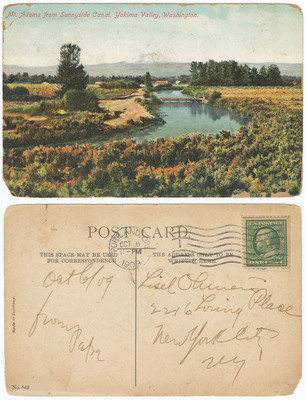 Mt. Adams from Sunnyside Canal, Yakima Valley, Washington.
POST CARD
THIS SPACE MAY BE USED
FOR CORRESPONDENCE
THE ADDRESS ONLY TO BE
WRITTEN HERE
OCT 6
11-PM
1909
Oct 6/09
from
Papa
2216 Loring Place
New York City
NY
Made in Germany